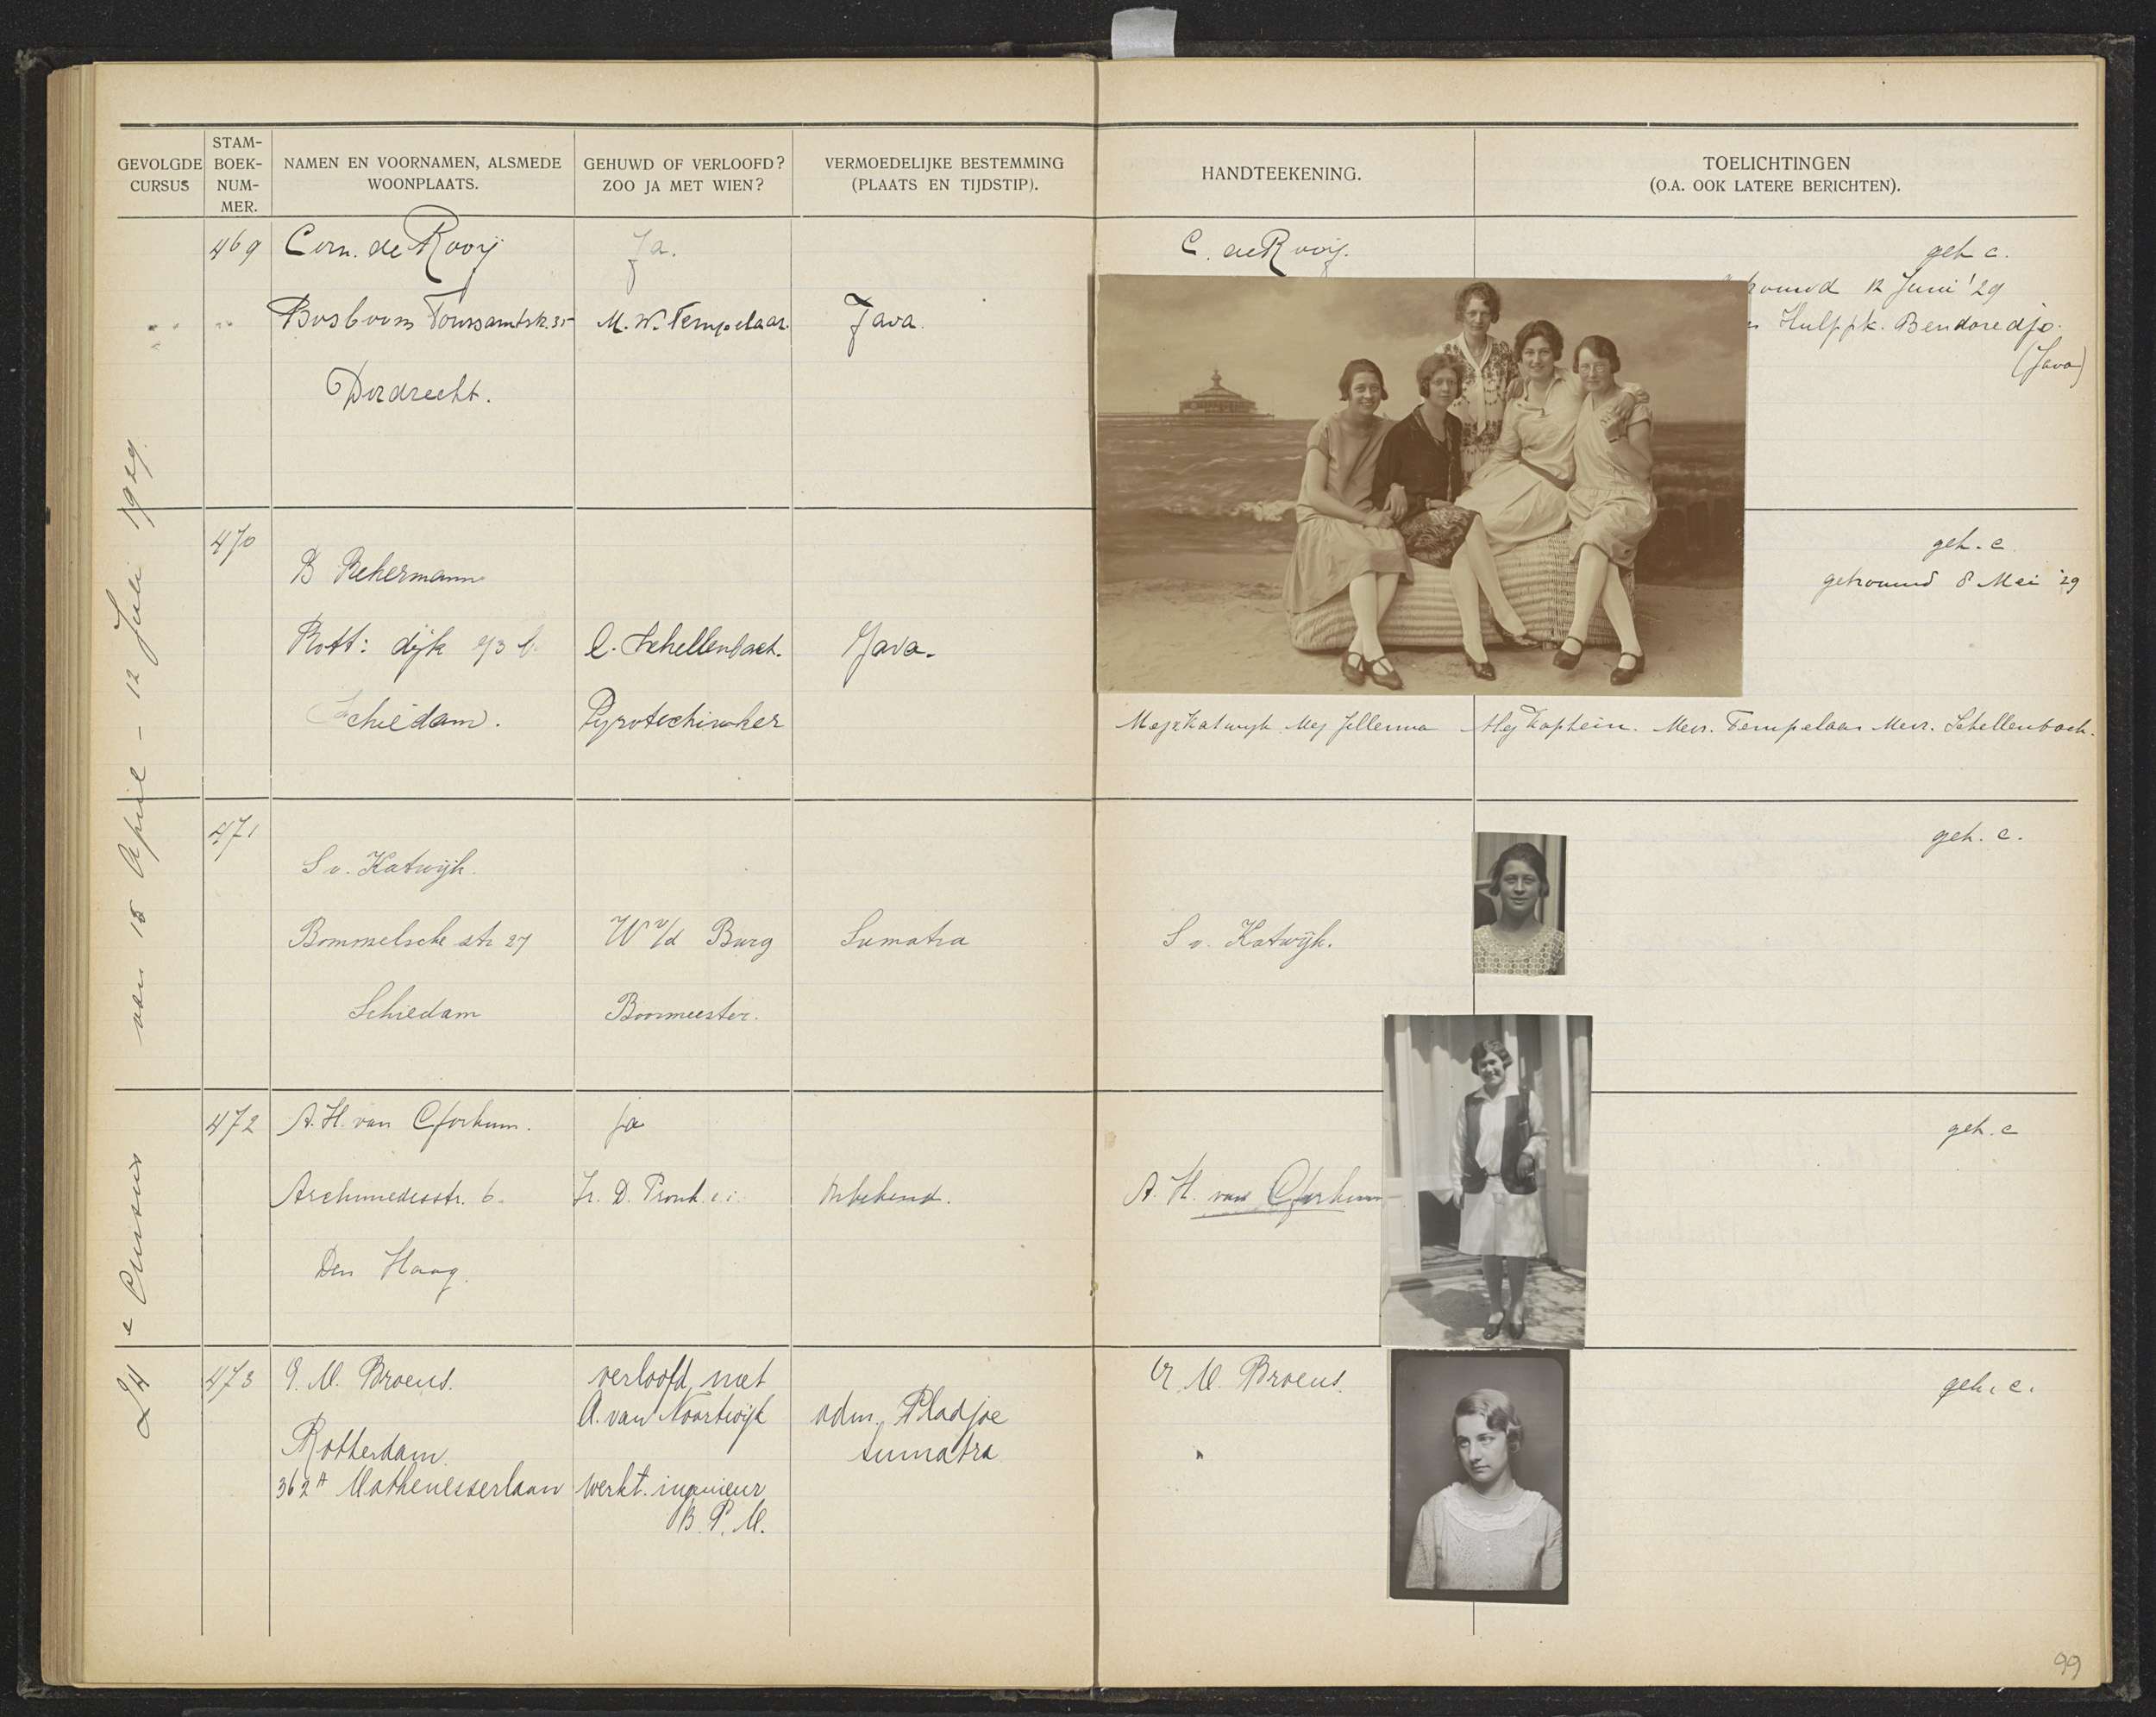 GEVOLGDE CURSUS
STAM-BOEK-NUM-MER.
NAMEN EN VOORNAMEN, ALSMEDE WOONPLAATS.
GEHUWD OF VERLOOFD? ZOO JA MET WIEN?
VERMOEDELIJKE BESTEMMING (PLAATS EN TIJDSTIP).
HANDTEEKENING.
TOELICHTINGEN (O.A. OOK LATERE BERICHTEN).
24e Cursus van 15 April - 12 Juli 1929.
469 Corn. de Rooij Ja. C. de Rooij. geh c.
12 Juni '29
Bosboom Toussaintstr. 35 M. W. Tempelaar. Java. Hulppk. Bendoredjo.
(Java)
Dordrecht.
470 geh. c.
B Rekermann getrouwd 8 Mei '29
Rott: dijk 93 b. C. Schellenbach. Java.
Schiedam. Pyrotechniker
Mej v Katwijk Mej Jellema Mej Kaptein. Mevr. Tempelaar Mevr. Schellenbach.
471 geh. c.
S v. Katwijk.
Bommelsche str 27 W v/d Burg Sumatra S v. Katwijk.
Schiedam Boormeester.
472 A. H. van Gorkum. ja geh. c
Archimedesstr. 6. Ir. D. Pronk c.i. Onbekend. A. H. van Gorkum
Den Haag.
473 G. M. Broens. verloofd met G. M. Broens. geh. c.
A. van Noortwijk adm. Pladjoe
Rotterdam. Sumatra
362A Mathenesserlaan werkt. ingenieur
B. P. M.
99